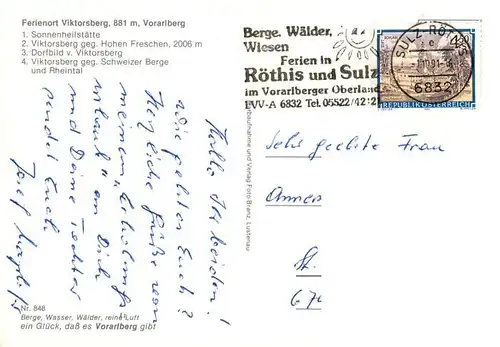 Ferienort Viktorsberg, 881 m, Vorarlberg
1. Sonnenheilstätte
2. Viktorsberg geg. Hohen Freschen, 2006 m
3. Dorfbild v. Viktorsberg
4. Viktorsberg geg. Schweizer Berge
und Rheintal
Berge, Wälder,
Wiesen
Ferien in
Röthis und Sulz
im Vorarlberger Oberland
FVV-A 6832 Tel. 05522/42:2
SULZ-RÖTHIS
6832
REPUBLIK ÖSTERREICH
Hallo Ihr beiden!
Wie geht es Euch?
Herzliche Grüße von
meinem "Erholungs
urlaub" an Dich
und Deine Tochter
sendet Euch
Josef
Sehr geehrte Frau
St.
Verlag Foto Branz, Lustenau
Nr. 848
Berge, Wasser, Wälder, reine Luft
ein Glück, daß es Vorarlberg gibt